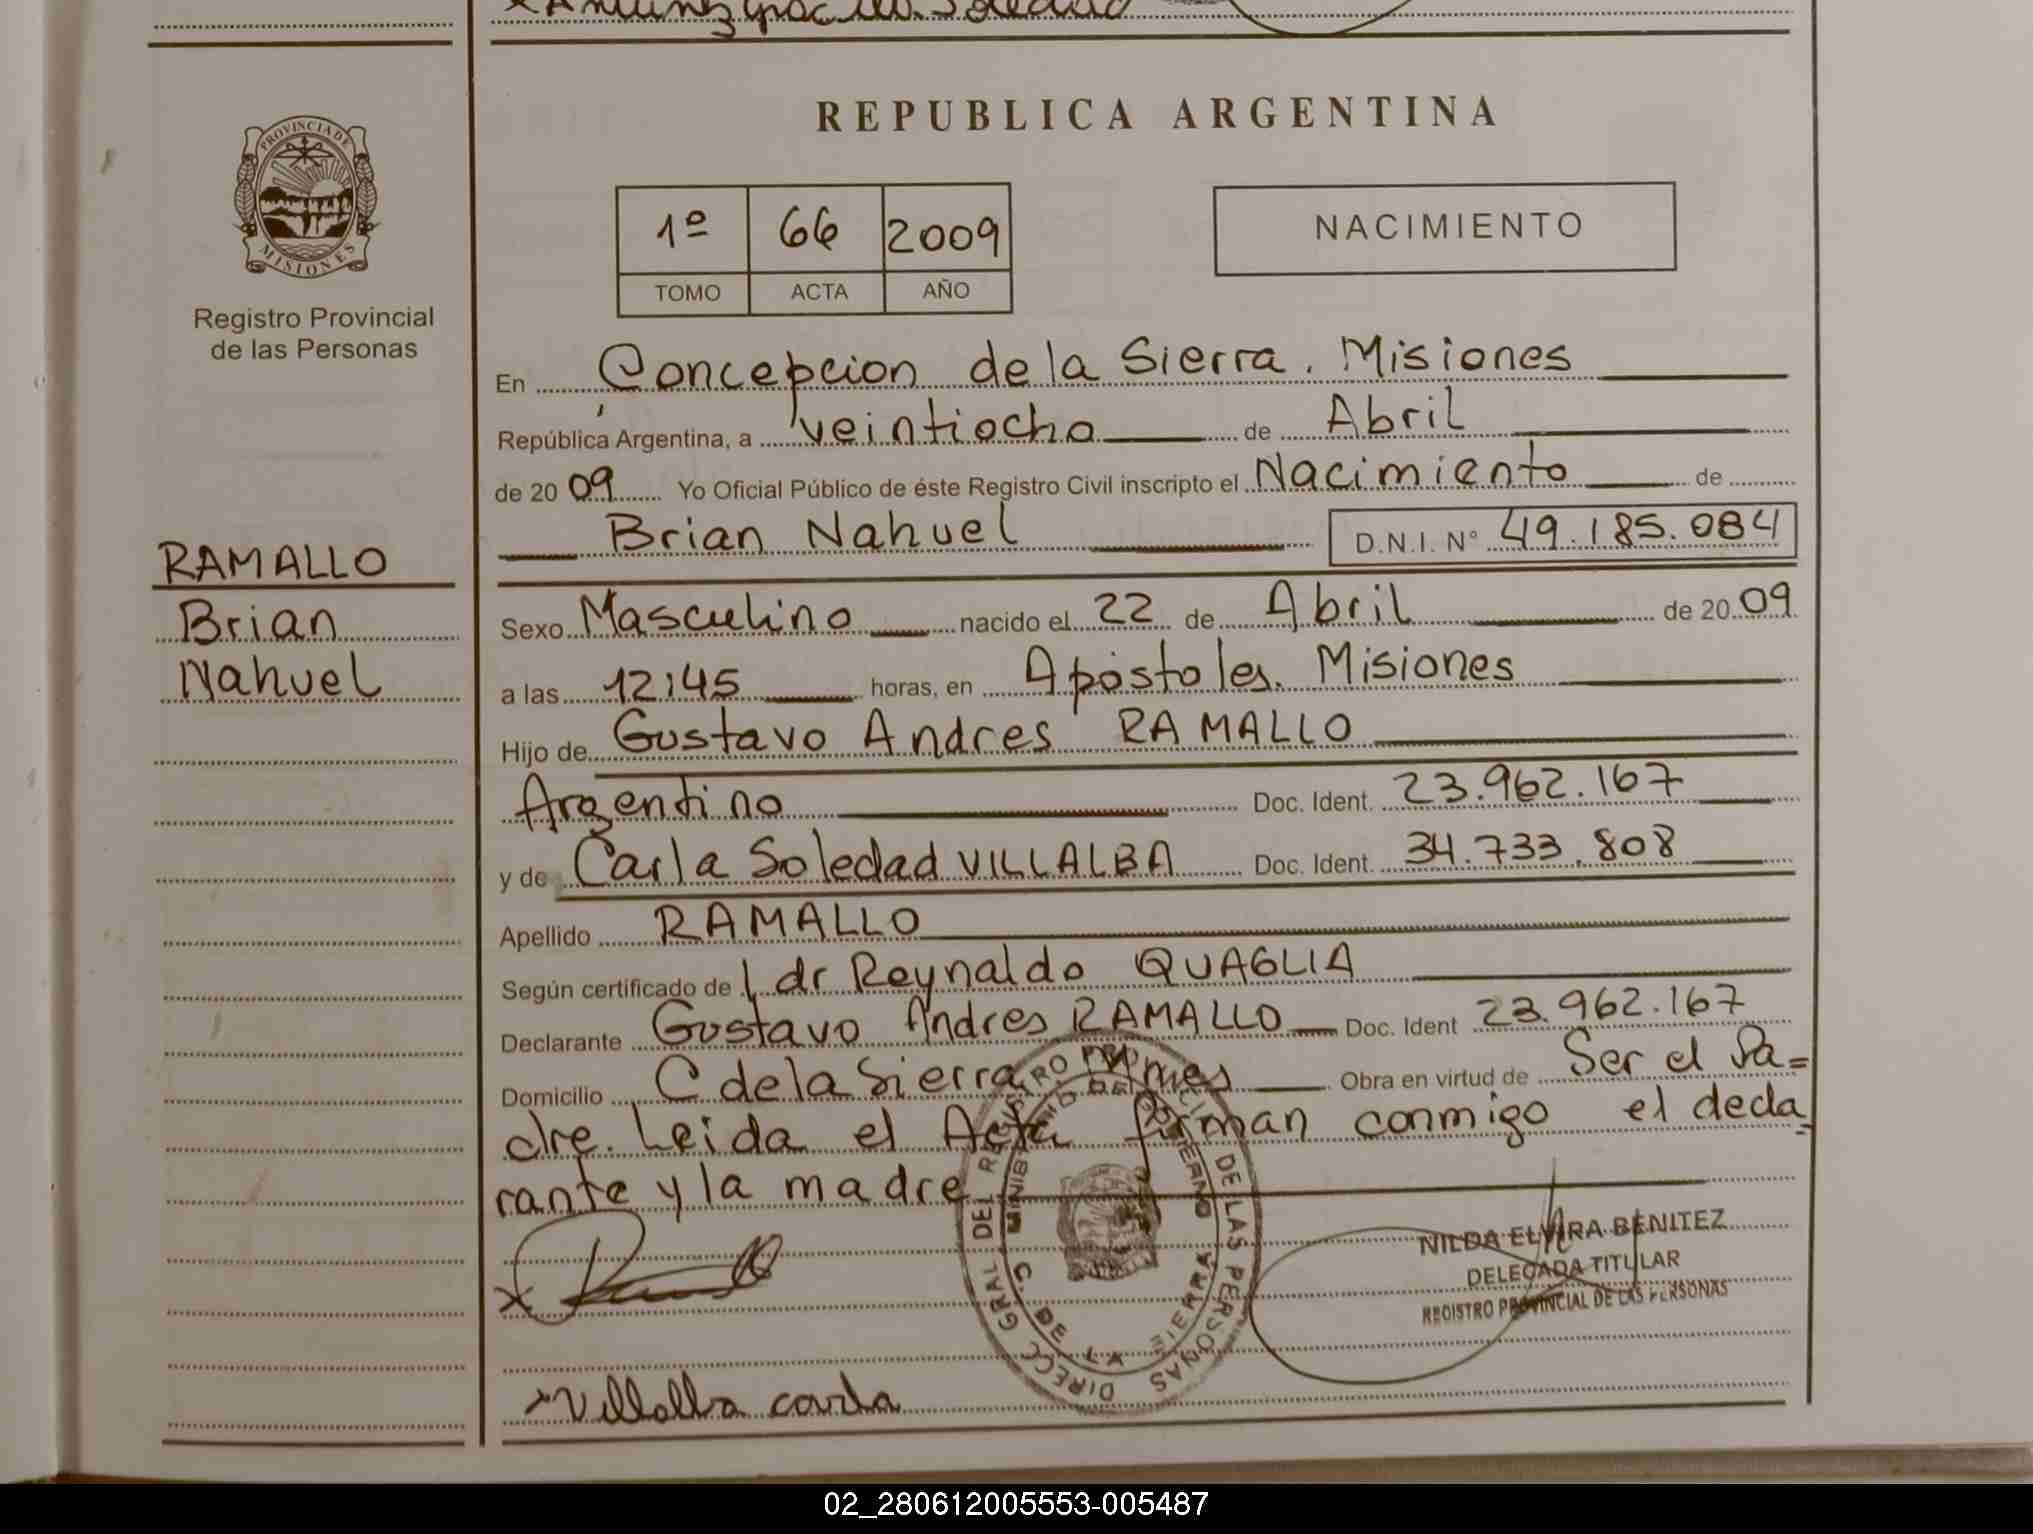 PROVINCIA DE
MISIONES
Registro Provincial
de las Personas
RAMALLO
Brian
Nahuel
Soledad
REPUBLICA ARGENTINA
1º 66 2009
TOMO ACTA AÑO
NACIMIENTO
En Concepcion de la Sierra. Misiones
República Argentina, a veintiocho de Abril
de 2009 Yo Oficial Público de éste Registro Civil inscripto el Nacimiento de
Brian Nahuel D.N.I. Nº 49.185.084
Sexo Masculino nacido el 22 de Abril de 2009
a las 12:45 horas, en Apóstoles. Misiones
Hijo de Gustavo Andres RAMALLO
Argentino Doc. Ident. 23.962.167
y de Carla Soledad VILLALBA Doc. Ident. 34.733.808
Apellido RAMALLO
Según certificado de l dr Reynaldo QUAGLIA
Declarante Gustavo Andres RAMALLO Doc. Ident 23.962.167
Domicilio C de la Sierra Mnes Obra en virtud de Ser el Pa=
dre. Leida el Acta firman conmigo el decla=
rante y la madre
DIRECC. GRAL DEL REGISTRO PROVINCIAL DE LAS PERSONAS
MINISTERIO DE GOBIERNO
C. DE LA SIERRA
NILDA ELVIRA BENITEZ
DELEGADA TITULAR
REGISTRO PROVINCIAL DE LAS PERSONAS
x
x Villalba carla
02_280612005553-005487